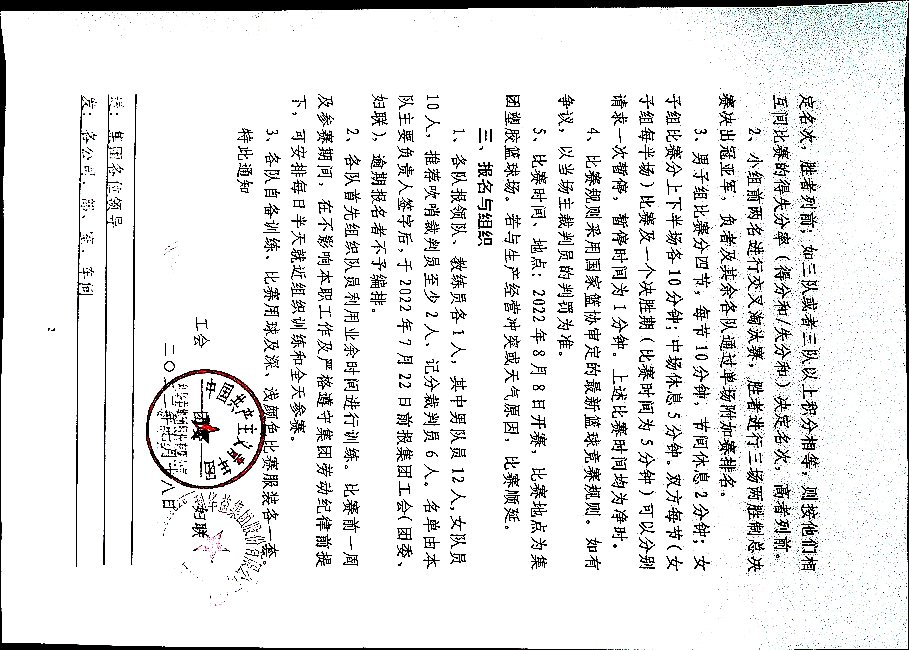 定名次，胜者列前；如三队或者三队以上积分相等，则按他们相
互间比赛的得失分率（得分和/失分和）决定名次，高者列前。
2、小组前两名进行交叉淘汰赛，胜者进行三场两胜制总决
赛决出冠亚军，负者及其余各队通过单场附加赛排名。
3、男子组比赛分四节，每节10分钟，节间休息2分钟；女
子组比赛分上下半场各10分钟；中场休息5分钟。双方每节（女
子组每半场）比赛及一个决胜期（比赛时间为5分钟）可以分别
请求一次暂停，暂停时间为1分钟。上述比赛时间均为净时。
4、比赛规则采用国家篮协审定的最新篮球竞赛规则。如有
争议，以当场主裁判员的判罚为准。
5、比赛时间、地点：2022年8月8日开赛，比赛地点为集
团塑胶篮球场。若与生产经营冲突或天气原因，比赛顺延。
三、报名与组织
1、各队报领队、教练员各1人，其中男队员12人，女队员
10人，推荐吹哨裁判员至少2人、记分裁判员6人。名单由本
队主要负责人签字后，于2022年7月22日前报集团工会（团委、
妇联），逾期报名者不予编排。
2、各队首先组织队员利用业余时间进行训练。比赛前一周
及参赛期间，在不影响本职工作及严格遵守集团劳动纪律前提
下，可安排每日半天就近组织训练和全天参赛。
3、各队自备训练、比赛用球及深、浅颜色比赛服装各一套。
特此通知
工会 团委 妇联
二〇 八日
中国共产主义青年团
送：集团各位领导
发：各公司、部、室、车间